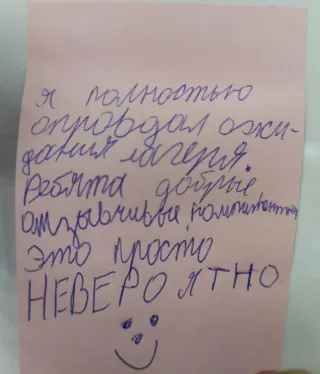 я полностью
оправдал ожи-
дания лагеря.
Ребята добрые,
отзывчивые, компитентны
Это просто
НЕВЕРОЯТНО